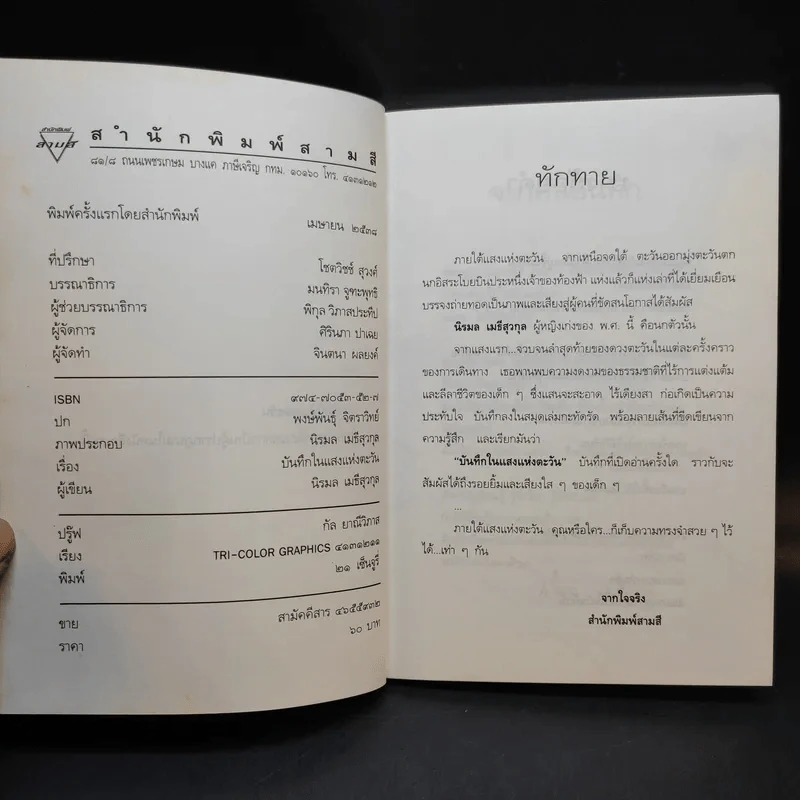 สำนักพิมพ์
สามสี
สำนักพิมพ์สามสี
๘๑/๘ ถนนเพชรเกษม บางแค ภาษีเจริญ กทม. ๑๐๑๖๐ โทร. ๔๑๓๑๒๑๒
พิมพ์ครั้งแรกโดยสำนักพิมพ์ เมษายน ๒๕๓๘
ที่ปรึกษา โชตวิชช์ สุวงศ์
บรรณาธิการ มนทิรา จูฑะพุทธิ
ผู้ช่วยบรรณาธิการ พิกุล วิภาสประทีป
ผู้จัดการ ศิรินภา ปาเฉย
ผู้จัดทำ จินตนา ผลยงค์
ISBN ๙๗๔-๗๐๕๓-๕๒-๗
ปก พงษ์พันธุ์ จิตราวิทย์
ภาพประกอบ นิรมล เมธีสุวกุล
เรื่อง บันทึกในแสงแห่งตะวัน
ผู้เขียน นิรมล เมธีสุวกุล
ปรู๊ฟ กัล ยาณีวิภาส
เรียง TRI-COLOR GRAPHICS ๔๑๓๑๒๑๑
พิมพ์ ๒๑ เซ็นจูรี่
ขาย สามัคคีสาร ๔๖๕๕๙๓๒
ราคา ๖๐ บาท
ทักทาย
ภายใต้แสงแห่งตะวัน จากเหนือจดใต้ ตะวันออกมุ่งตะวันตก
นกอิสระโบยบินประหนึ่งเจ้าของท้องฟ้า แห่งแล้วก็แห่งเล่าที่ได้เยี่ยมเยือน
บรรจงถ่ายทอดเป็นภาพและเสียงสู่ผู้คนที่ขัดสนโอกาสได้สัมผัส
นิรมล เมธีสุวกุล ผู้หญิงเก่งของ พ.ศ. นี้ คือนกตัวนั้น
จากแสงแรก...จวบจนลำสุดท้ายของดวงตะวันในแต่ละครั้งคราว
ของการเดินทาง เธอพานพบความงดงามของธรรมชาติที่ไร้การแต่งแต้ม
และลีลาชีวิตของเด็ก ๆ ซึ่งแสนจะสะอาด ไร้เดียงสา ก่อเกิดเป็นความ
ประทับใจ บันทึกลงในสมุดเล่มกะทัดรัด พร้อมลายเส้นที่ขีดเขียนจาก
ความรู้สึก และเรียกมันว่า
“บันทึกในแสงแห่งตะวัน” บันทึกที่เปิดอ่านครั้งใด ราวกับจะ
สัมผัสได้ถึงรอยยิ้มและเสียงใส ๆ ของเด็ก ๆ
...
ภายใต้แสงแห่งตะวัน คุณหรือใคร...ก็เก็บความทรงจำสวย ๆ ไว้
ได้...เท่า ๆ กัน
จากใจจริง
สำนักพิมพ์สามสี